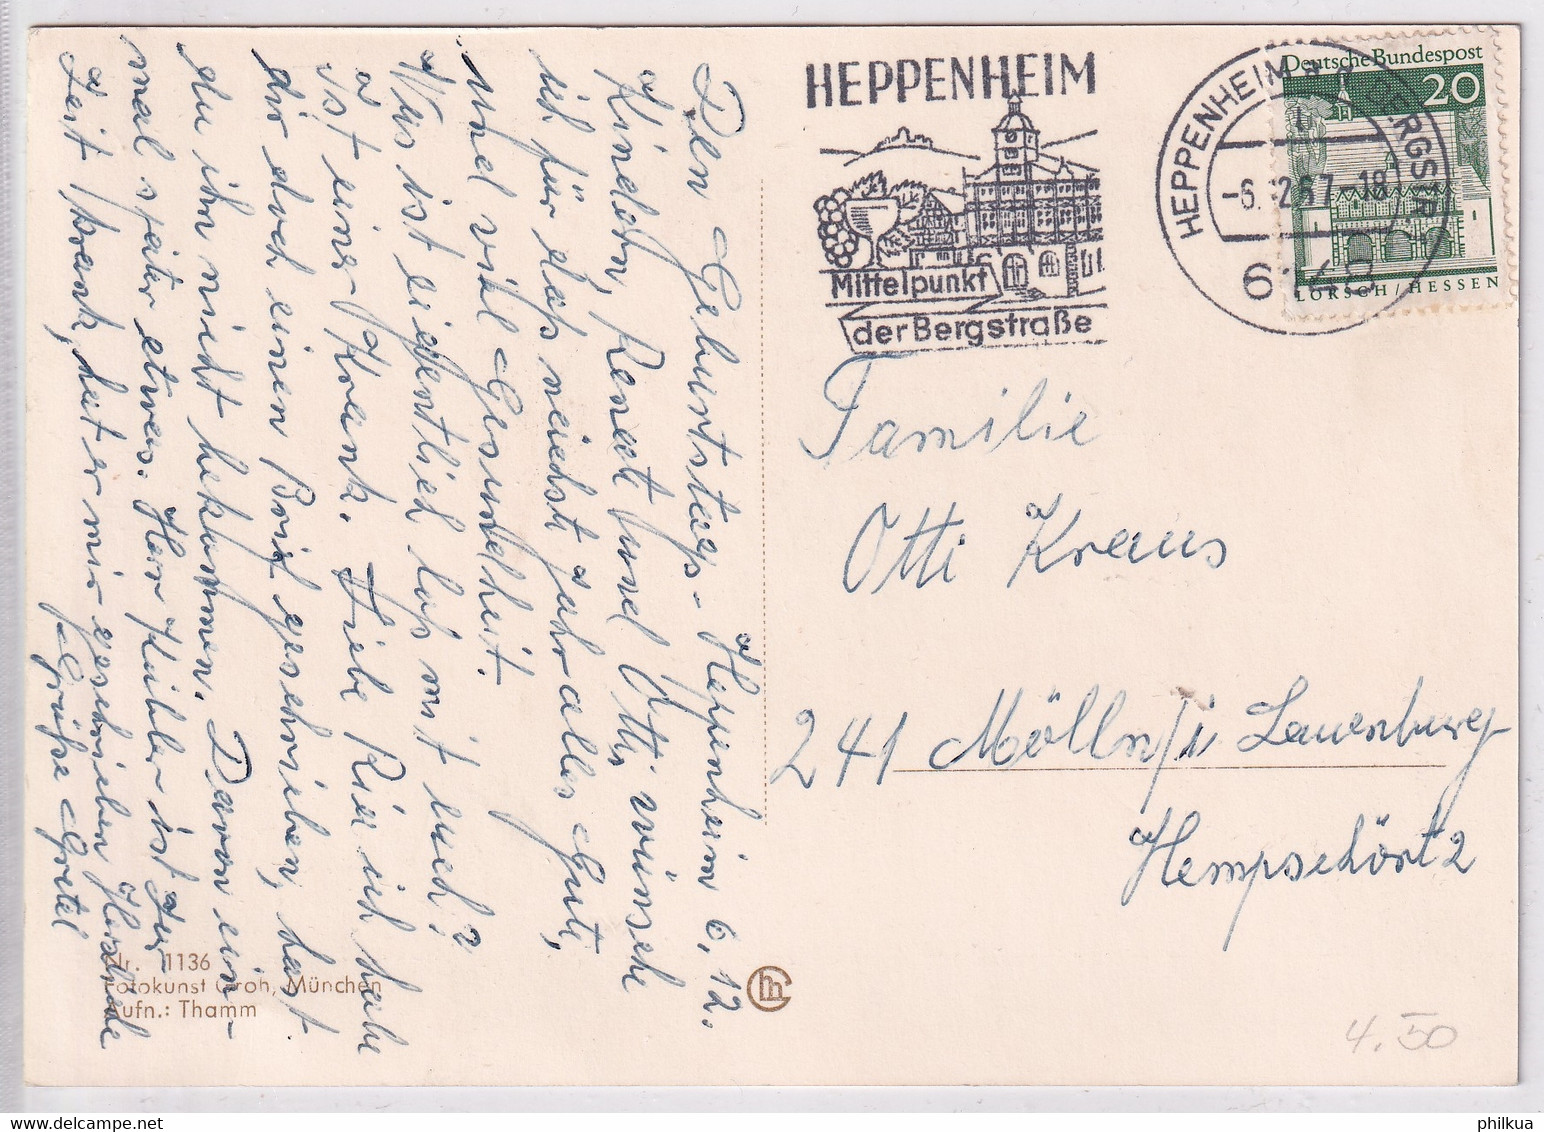 HEPPENHEIM
Mittelpunkt
der Bergstraße
HEPPENHEIM
BERGSTR
-6.12.67-18
Deutsche Bundespost
20
LORSCH/HESSEN
Heppenheim 6. 12.
Den Geburtstags-
Kindern, Renate und Otti wünsche
ich für das nächste Jahr alles Gute,
und viel Gesundheit.
Was ist eigentlich los mit euch?
Ist einer Krank. Liebe Ria ich habe
dir doch einen Brief geschrieben, hast
du ihn nicht bekommen. Davon ein-
mal später etwas. Herr Hübler ist zur
Zeit krank, hat er mir geschrieben
Grüße Gretel
Familie
Otti Kraus
241 Mölln/i Lauenburg
Hempschört 2
Nr. 1136
Fotokunst Groh, München
Aufn.: Thamm
4.50
philkua